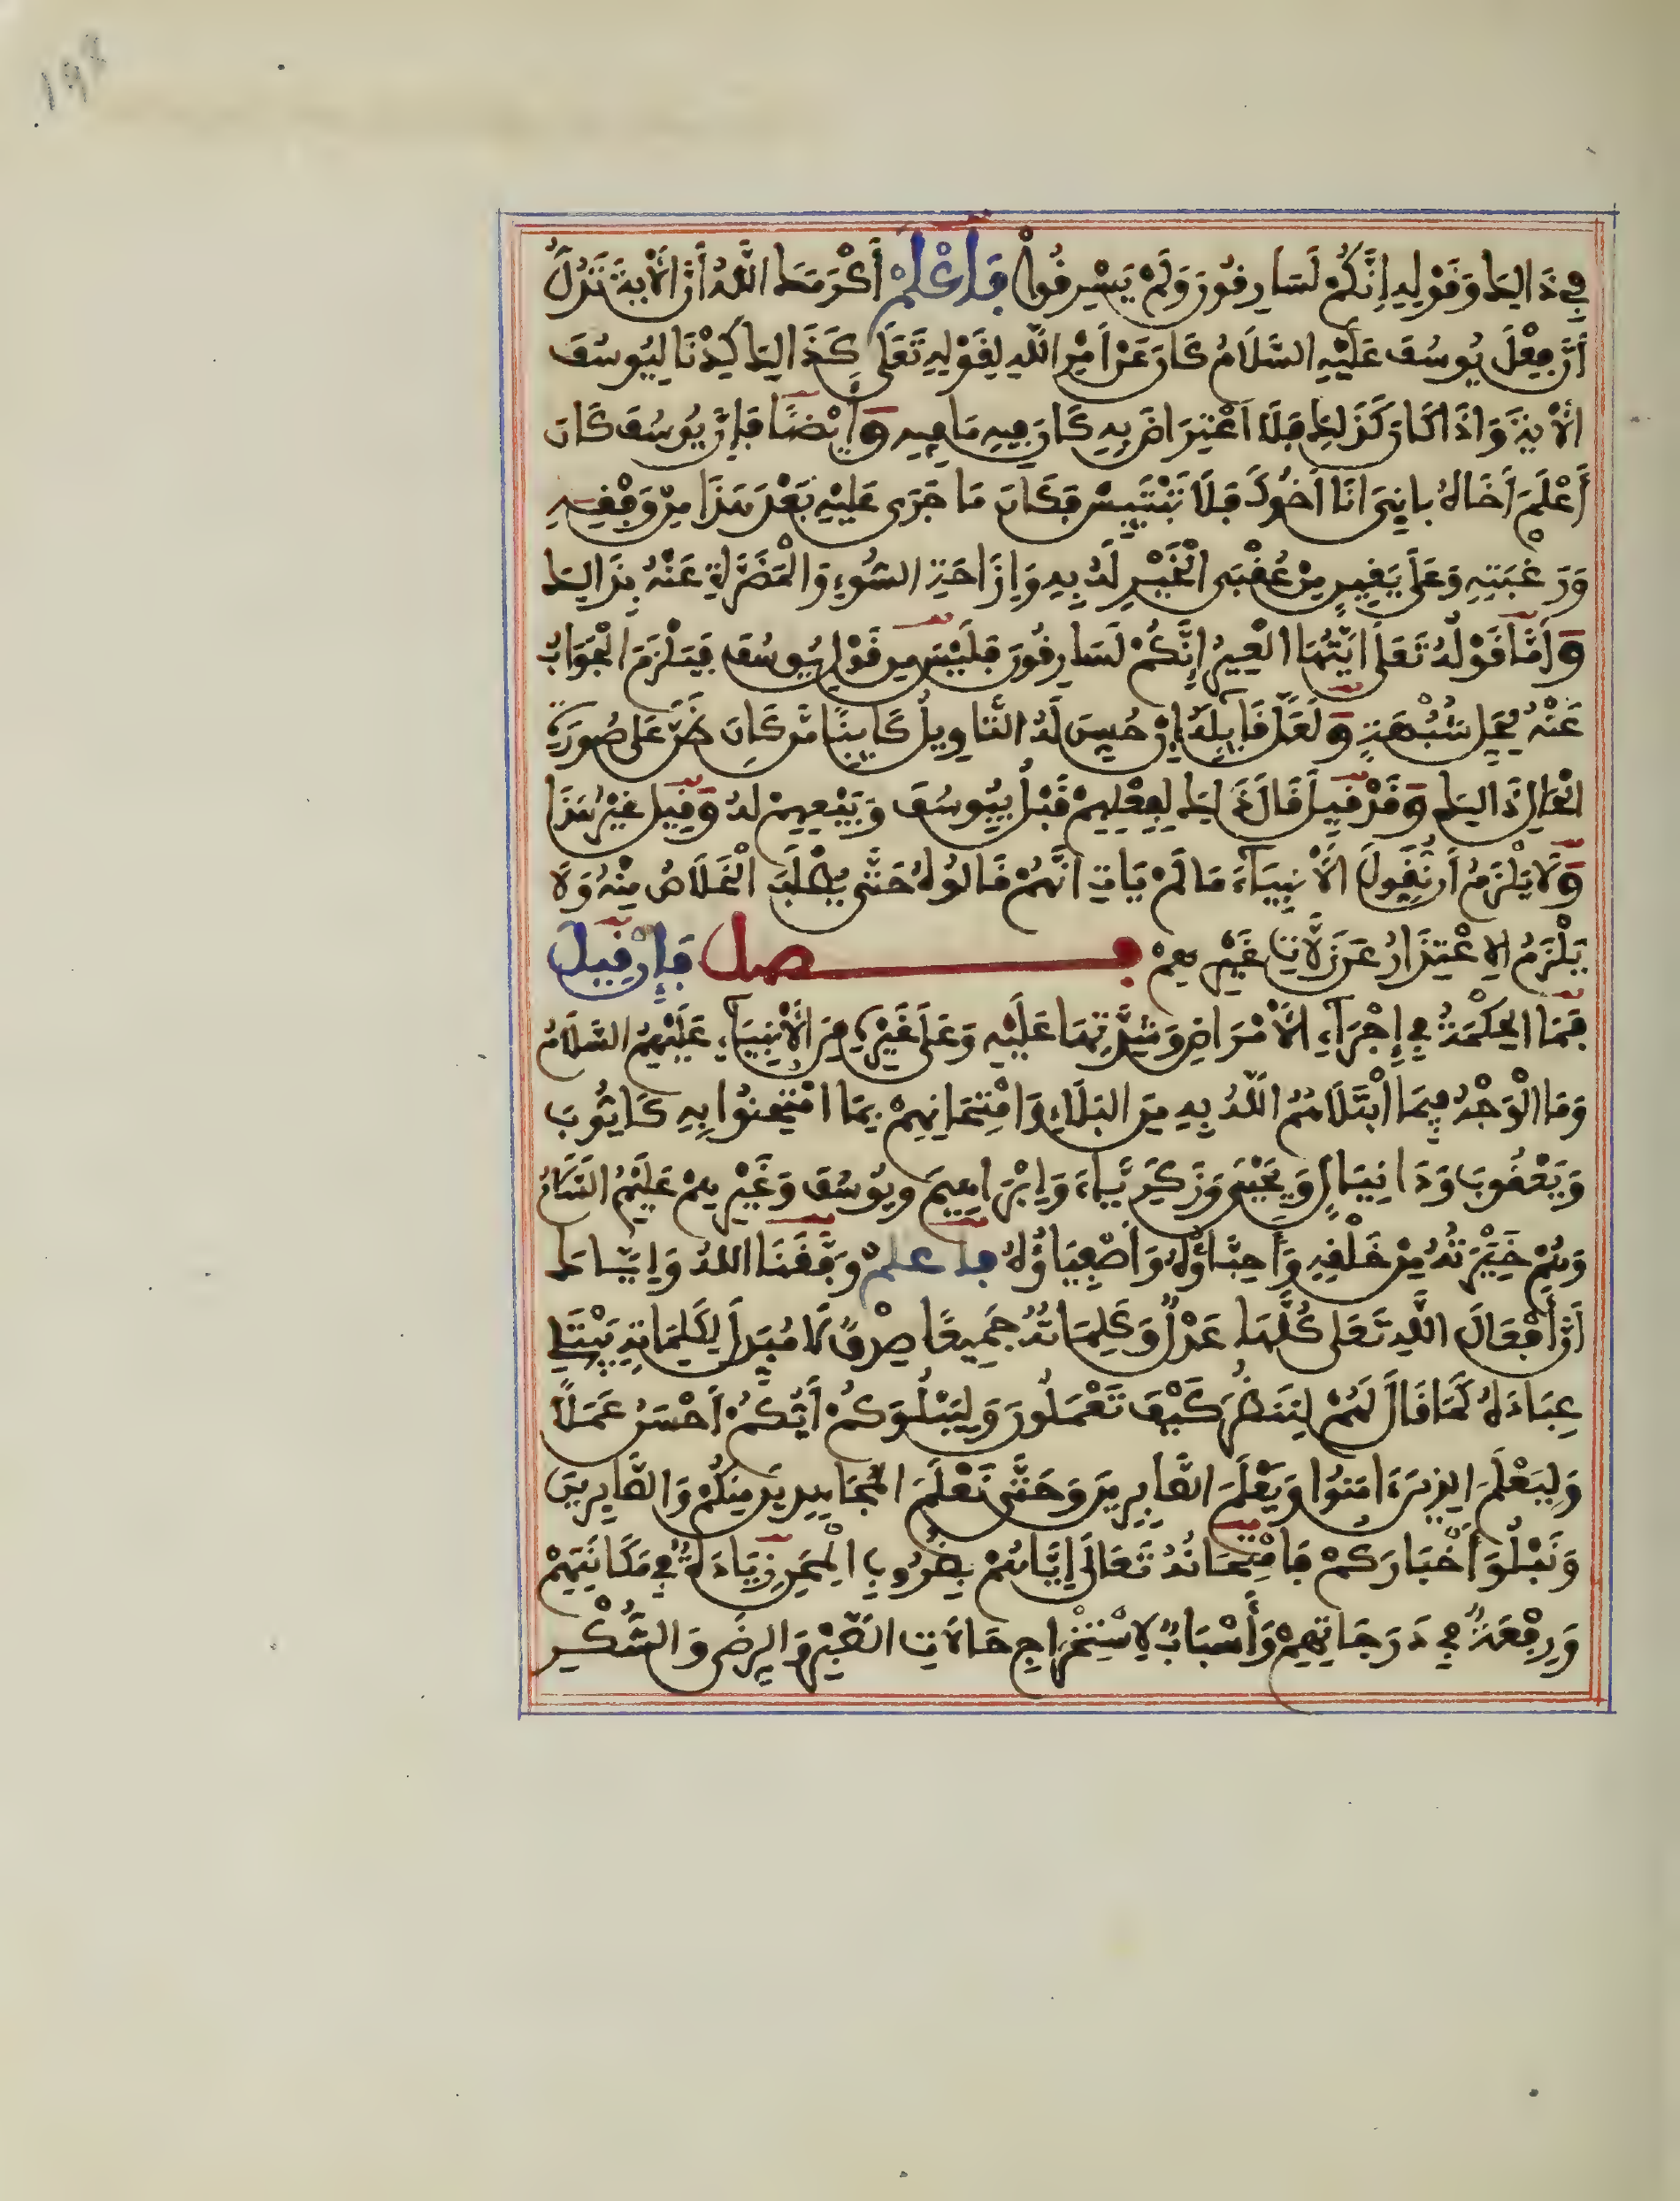 فِي ذَالِكَ وَقَوْلِهِ إِنَّكُمْ لَسَارِقُونَ وَلَمْ يَسْرِقُوا فَاعْلَمْ أَكْرَمَكَ اللَّهُ أَنَّ الْآيَةَ تَدُلُّ
أَنَّ فِعْلَ يُوسُفَ عَلَيْهِ السَّلَامُ كَانَ عَنْ أَمْرِ اللَّهِ لِقَوْلِهِ تَعَلَى كَذَالِكَ كِدْنَا لِيُوسُفَ
الْآيَةَ وَإِذَا كَانَ كَذَلِكَ فَلَا اعْتِرَاضَ بِهِ كَانَ فِيهِ مَا فِيهِ وَأَيْضًا فَإِنَّ يُوسُفَ كَانَ
أَعْلَمَ أَخَاهُ بِإِنِّي أَنَا أَخُوكَ فَلَا تَبْتَئِسْ فَكَانَ مَا جَرَى عَلَيْهِ بَعْدَ هَذَا مِنْ وَفْقِهِ
وَرَغْبَتِهِ وَعَلَى يَقِينٍ مِنْ عُقْبَى الْخَيْرِ لَهُ بِهِ وَإِزَاحَةِ السُّوءِ وَالْمَضَرَّةِ عَنْهُ بِذَالِكَ
وَأَمَّا قَوْلُهُ تَعَلَى أَيَّتُهَا الْعِيرُ إِنَّكُمْ لَسَارِقُونَ فَلَيْسَ مِنْ قَوْلِ يُوسُفَ فَيَلْزَمَ الْجَوَابُ
عَنْهُ يُحِلُّ شُبْهَةً وَلَعَلَّ قَائِلَهُ إِنْ حُسِّنَ لَهُ التَّأْوِيلُ كَائِنًا مَّنْ كَانَ ظَنَّ عَلَى صُورَةِ
الْحَالِ ذَالِكَ وَقَدْ قِيلَ قَالَ ذَالِكَ لِفِعْلِهِمْ قَبْلُ بِيُوسُفَ وَبَيْعِهِمْ لَهُ وَقِيلَ غَيْرُ هَذَا
وَلَا يَلْزَمُ أَنْ نُقَوِّلَ الْأَنْبِيَاءَ مَا لَمْ يَاتِ أَنَّهُمْ قَالُوهُ حَتَّى يُطْلَبَ الْخَلَاصُ مِنْهُ وَلَا
يَلْزَمُ الِاعْتِذَارُ عَنْ زَلَّاتِ غَيْرِهِمْ فصل فَإِنْ قِيلَ
فَمَا الْحِكْمَةُ فِي إِجْرَاءِ الْأَمْرَاضِ وَشِدَّتِهَا عَلَيْهِ وَعَلَى غَيْرِهِ مِنَ الْأَنْبِيَاءِ عَلَيْهِمُ السَّلَامُ
وَمَا الْوَجْهُ فِيمَا ابْتَلَاهُمُ اللَّهُ بِهِ مِنَ الْبَلَاءِ وَامْتِحَانِهِمْ بِمَا امْتُحِنُوا بِهِ كَأَيُّوبَ
وَيَعْقُوبَ وَدَانِيَالَ وَيَحْيَى وَزَكَرِيَّاءَ وَإِبْرَاهِيمَ وَيُوسُفَ وَغَيْرِهِمْ عَلَيْهِمُ السَّلَامُ
وَهُمْ خِيَرَتُهُ مِنْ خَلْقِهِ وَأَحِبَّاؤُهُ وَأَصْفِيَاؤُهُ فاعلمْ وَفَّقَنَا اللَّهُ وَإِيَّاكَ
أَنَّ أَفْعَالَ اللَّهِ تَعَلَى كُلَّهَا عَدْلٌ وَكَلِمَاتُهُ جَمِيعًا صِدْقٌ لَا مُبَدِّلَ لِكَلِمَاتِهِ يَبْتَلِي
عِبَادَهُ كَمَا قَالَ لَهُمْ لِنَنظُرَ كَيْفَ تَعْمَلُونَ وَلِيَبْلُوَكُمْ أَيُّكُمْ أَحْسَنُ عَمَلًا
وَلِيَعْلَمَ الَّذِينَ ءَامَنُوا وَيَعْلَمَ الصَّابِرِينَ وَحَتَّى نَعْلَمَ الْمُجَاهِدِينَ مِنكُمْ وَالصَّابِرِينَ
وَنَبْلُوَ أَخْبَارَكُمْ فَامْتِحَانُهُ تَعَالَى إِيَّاهُمْ بِضُرُوبِ الْمِحَنِ زِيَادَةٌ فِي مَكَانَتِهِمْ
وَرِفْعَةٌ فِي دَرَجَاتِهِمْ وَأَسْبَابٌ لِاسْتِخْرَاجِ حَالَاتِ الصَّبْرِ وَالرِّضَى وَالشُّكْرِ